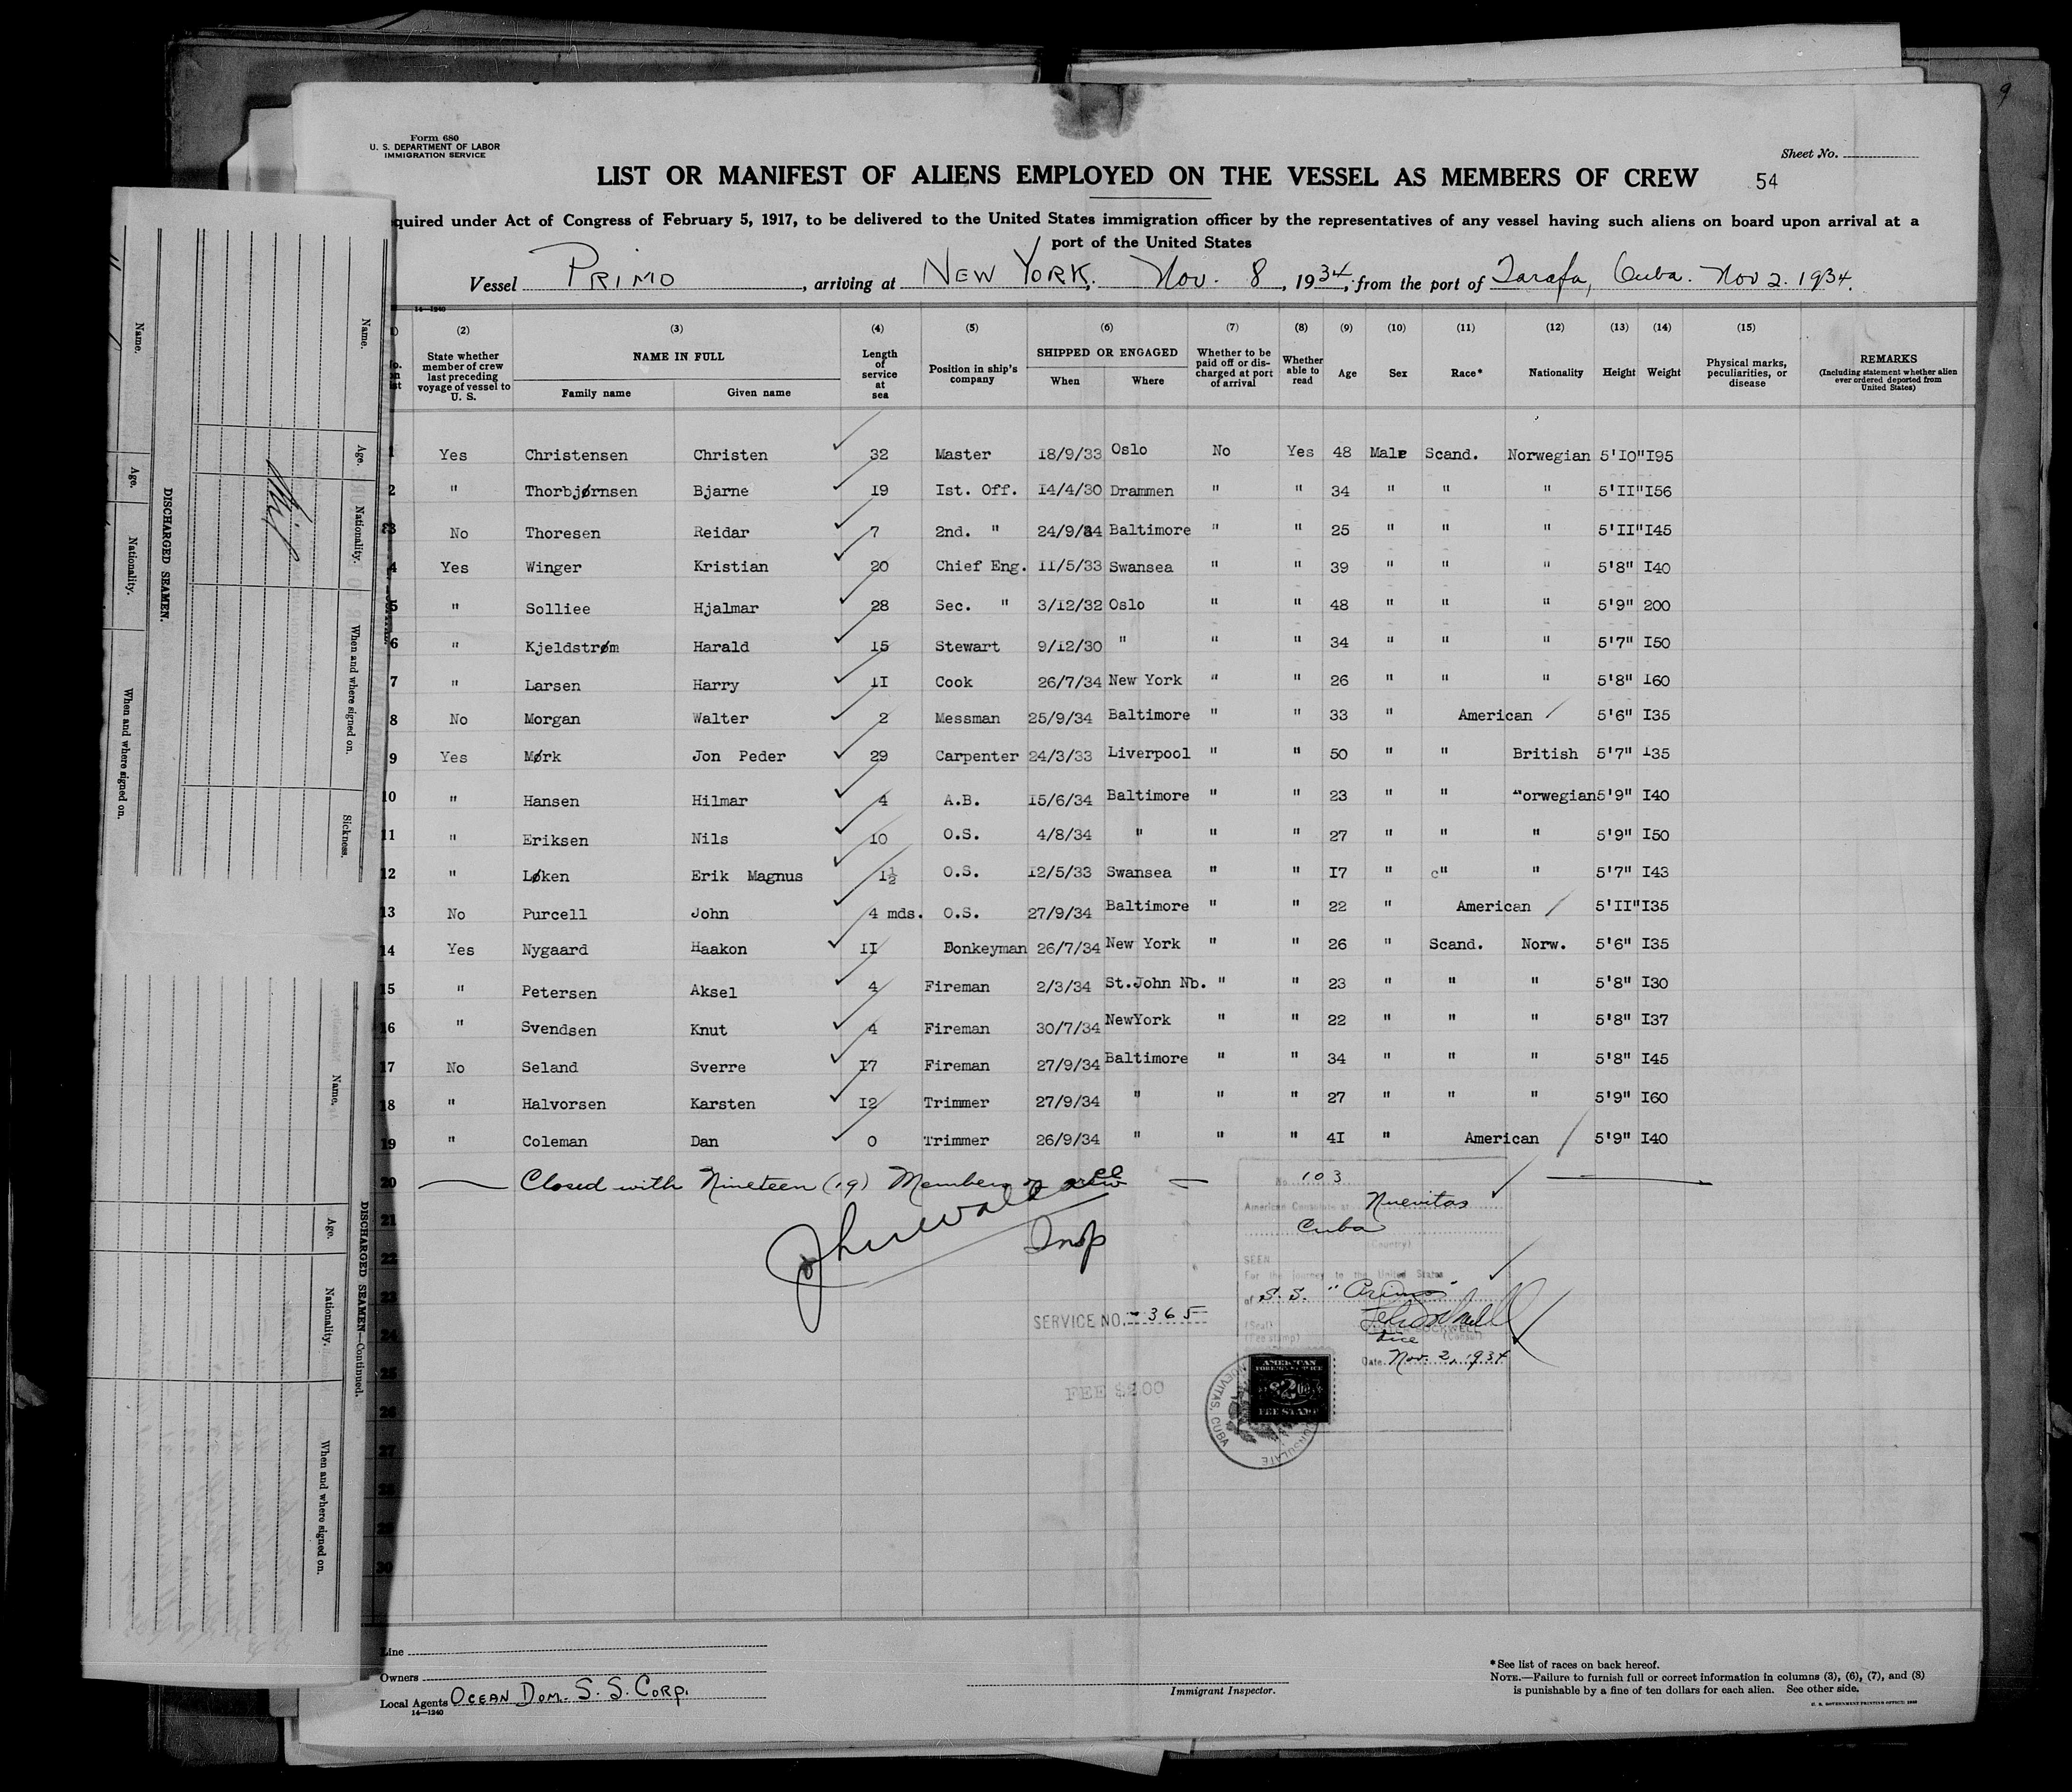 9
Form 680
U. S. DEPARTMENT OF LABOR
IMMIGRATION SERVICE
Sheet No.
LIST OR MANIFEST OF ALIENS EMPLOYED ON THE VESSEL AS MEMBERS OF CREW 54
quired under Act of Congress of February 5, 1917, to be delivered to the United States immigration officer by the representatives of any vessel having such aliens on board upon arrival at a
port of the United States
Vessel PRIMO, arriving at NEW YORK. Nov. 8, 1934, from the port of Tarafa, Cuba. Nov 2. 1934.
14—1240
(2) (3) (4) (5) (6) (7) (8) (9) (10) (11) (12) (13) (14) (15)
State whether member of crew last preceding voyage of vessel to U. S.
NAME IN FULL
Family name Given name
Length of service at sea
Position in ship's company
SHIPPED OR ENGAGED
When Where
Whether to be paid off or discharged at port of arrival
Whether able to read
Age Sex Race* Nationality Height Weight
Physical marks, peculiarities, or disease
REMARKS
(Including statement whether alien ever ordered deported from United States)
1 Yes Christensen Christen 32 Master 18/9/33 Oslo No Yes 48 Male Scand. Norwegian 5'I0" I95
2 " Thorbjørnsen Bjarne 19 Ist. Off. I4/4/30 Drammen " " 34 " " " 5'II" I56
3 No Thoresen Reidar 7 2nd. " 24/9/34 Baltimore " " 25 " " " 5'II" I45
4 Yes Winger Kristian 20 Chief Eng. II/5/33 Swansea " " 39 " " " 5'8" I40
5 " Solliee Hjalmar 28 Sec. " 3/I2/32 Oslo " " 48 " " " 5'9" 200
6 " Kjeldstrøm Harald 15 Stewart 9/I2/30 " " " 34 " " " 5'7" I50
7 " Larsen Harry II Cook 26/7/34 New York " " 26 " " " 5'8" I60
8 No Morgan Walter 2 Messman 25/9/34 Baltimore " " 33 " American 5'6" I35
9 Yes Mørk Jon Peder 29 Carpenter 24/3/33 Liverpool " " 50 " " British 5'7" I35
10 " Hansen Hilmar 4 A.B. I5/6/34 Baltimore " " 23 " " Norwegian 5'9" I40
11 " Eriksen Nils 10 O.S. 4/8/34 " " " 27 " " " 5'9" I50
12 " Løken Erik Magnus I½ O.S. I2/5/33 Swansea " " I7 " " " 5'7" I43
13 No Purcell John 4 mds. O.S. 27/9/34 Baltimore " " 22 " American 5'II" I35
14 Yes Nygaard Haakon II Donkeyman 26/7/34 New York " " 26 " Scand. Norw. 5'6" I35
15 " Petersen Aksel 4 Fireman 2/3/34 St.John Nb. " " 23 " " " 5'8" I30
16 " Svendsen Knut 4 Fireman 30/7/34 NewYork " " 22 " " " 5'8" I37
17 No Seland Sverre I7 Fireman 27/9/34 Baltimore " " 34 " " " 5'8" I45
18 " Halvorsen Karsten I2 Trimmer 27/9/34 " " " 27 " " " 5'9" I60
19 " Coleman Dan 0 Trimmer 26/9/34 " " " 4I " American 5'9" I40
20 Closed with Nineteen (19) Members of crew
21
22
23
24
25
26
27
28
29
30
Insp
No. 103
American Consulate at Nuevitas
Cuba
(Country)
SEEN
For the journey to the United States
of S. S. "Primo"
(Seal)
(Fee stamp)
Vice (Consul)
Date Nov. 2, 1934
SERVICE NO. 365
FEE $2.00
AMERICAN
FOREIGN SERVICE
$2.00
FEE STAMP
NUEVITAS, CUBA
CONSULATE
Line
Owners
Local Agents OCEAN DOM. S. S. CORP.
14—1240
Immigrant Inspector.
*See list of races on back hereof.
NOTE.—Failure to furnish full or correct information in columns (3), (6), (7), and (8)
is punishable by a fine of ten dollars for each alien. See other side.
U. S. GOVERNMENT PRINTING OFFICE
DISCHARGED SEAMEN.
Name. Age. Nationality. When and where signed on. Sickness.
Name. Age. Nationality. When and where signed on.
DISCHARGED SEAMEN—Continued.
Name. Age. Nationality. When and where signed on.